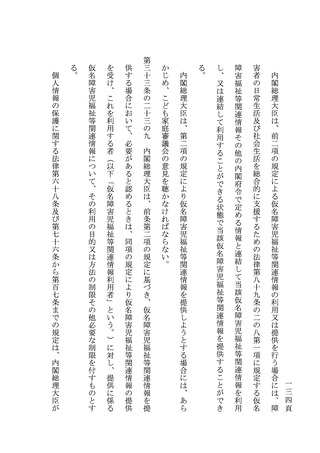 一三四頁
内閣総理大臣は、前二項の規定による仮名障害児福祉等関連情報の利用又は提供を行う場合には、障
害者の日常生活及び社会生活を総合的に支援するための法律第八十九条の二の八第一項に規定する仮名
障害福祉等関連情報その他の内閣府令で定める情報と連結して当該仮名障害児福祉等関連情報を利用
し、又は連結して利用することができる状態で当該仮名障害児福祉等関連情報を提供することができ
る。
内閣総理大臣は、第二項の規定により仮名障害児福祉等関連情報を提供しようとする場合には、あら
かじめ、こども家庭審議会の意見を聴かなければならない。
第三十三条の二十三の九　内閣総理大臣は、前条第二項の規定に基づき、仮名障害児福祉等関連情報を提
供する場合において、必要があると認めるときは、同項の規定により仮名障害児福祉等関連情報の提供
を受け、これを利用する者（以下「仮名障害児福祉等関連情報利用者」という。）に対し、提供に係る
仮名障害児福祉等関連情報について、その利用の目的又は方法の制限その他必要な制限を付すものとす
る。
個人情報の保護に関する法律第六十八条及び第七十六条から第百七条までの規定は、内閣総理大臣が